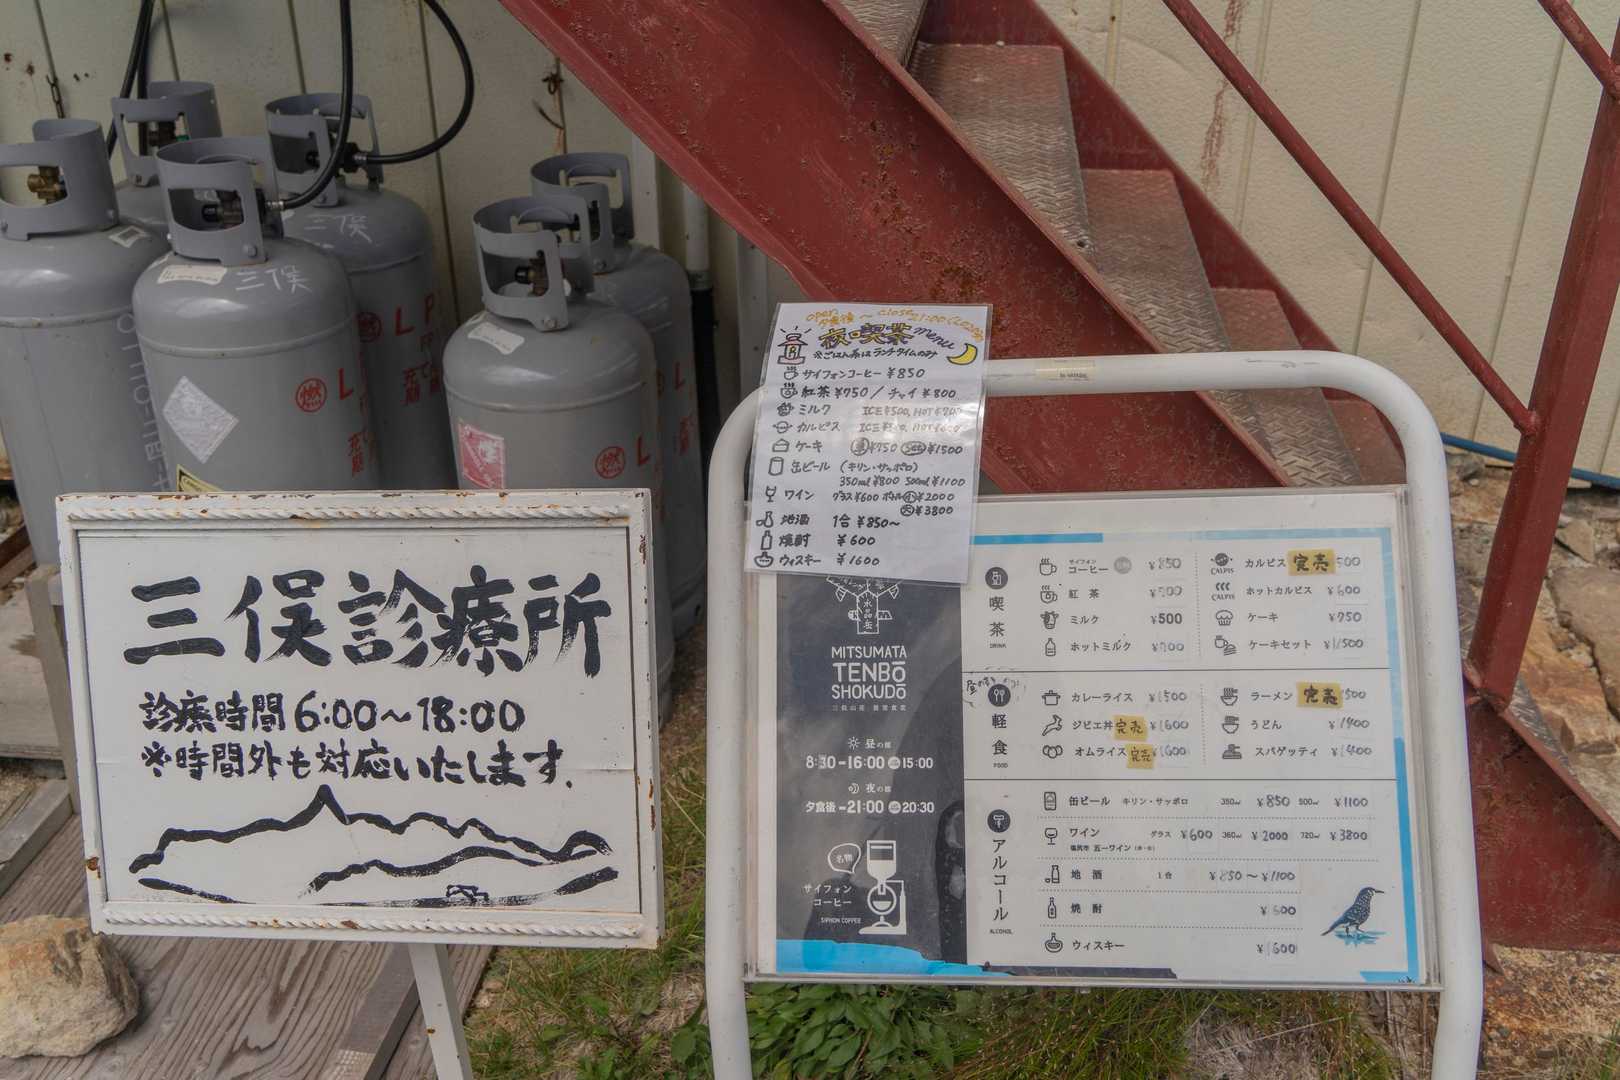 三俣
三俣
燃
燃
三俣診療所
診療時間 6:00〜18:00
※時間外も対応いたします。
open 夕食後 〜 close 21:00 (LO20:30)
夜喫茶 menu
※ごはん系はランチタイムのみ
サイフォンコーヒー ¥850
紅茶 ¥750 / チャイ ¥800
ミルク ICE ¥500, HOT ¥700
カルピス
ケーキ ¥750 ¥1500
缶ビール (キリン・サッポロ)
350ml ¥800 500ml ¥1100
ワイン グラス ¥600 ボトル 小 ¥2000
大 ¥3800
地酒 1合 ¥850〜
焼酎 ¥600
ウィスキー ¥1600
水晶岳
MITSUMATA
TENBŌ
SHOKUDŌ
三俣山荘 展望食堂
昼の部
8:30-16:00 15:00
夜の部
夕食後-21:00 20:30
名物
サイフォン
コーヒー
SIPHON COFFEE
喫茶
DRINK
サイフォン
コーヒー ¥850
紅茶
ミルク ¥500
ホットミルク ¥700
CALPIS カルピス 完売 500
CALPIS ホットカルピス ¥600
ケーキ ¥750
ケーキセット ¥1,500
軽食
FOOD
カレーライス ¥1500
ジビエ丼 完売 ¥1600
オムライス 完売 ¥1600
ラーメン 完売 500
うどん ¥1400
スパゲッティ ¥1400
アルコール
ALCOHOL
缶ビール キリン・サッポロ 350ml ¥850 500ml ¥1100
ワイン グラス ¥600 360ml ¥2000 720ml ¥3800
塩尻市 五一ワイン (赤・白)
地酒 1合 ¥850〜¥1100
焼酎 ¥600
ウィスキー ¥1600